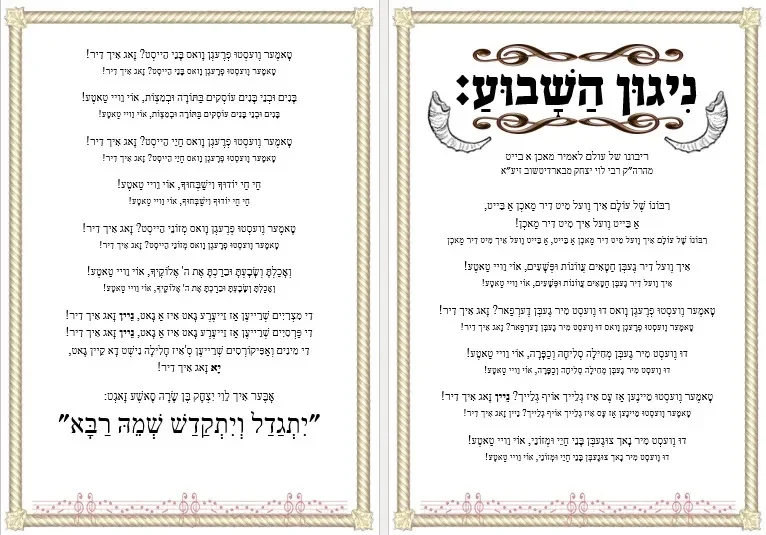 נִיגוּן הַשָּׁבוּעַ:
ריבונו של עולם לאמיר מאכן א בייט
מהרה"ק רבי לוי יצחק מבארדיטשוב זיע"א
רִבּוֹנוֹ שֶׁל עוֹלָם אִיךְ וֶועל מִיט דִיר מַאכְן אַ בַּייט,
אַ בַּייט וֶועל אִיךְ מִיט דִיר מַאכְן!
רִבּוֹנוֹ שֶׁל עוֹלָם אִיךְ וֶועל מִיט דִיר מַאכְן אַ בַּייט, אַ בַּייט וֶועל אִיךְ מִיט דִיר מַאכְן
אִיךְ וֶועל דִיר גֶעבְּן חַטָאִים עֲווֹנוֹת וּפְּשָׁעִים, אוֹי וַויי טַאטֶע!
אִיךְ וֶועל דִיר גֶעבְּן חַטָאִים עֲווֹנוֹת וּפְּשָׁעִים, אוֹי וַויי טַאטֶע!
טָאמֶער וֶועסְטוּ פְרֶעגְן וָואס דוּ וֶועסְט מִיר גֶעבְּן דֶערְפַאר? זָאג אִיךְ דִיר!
טָאמֶער וֶועסְטוּ פְרֶעגְן וָואס דוּ וֶועסְט מִיר גֶעבְּן דֶערְפַאר? זָאג אִיךְ דִיר!
דוּ וֶועסְט מִיר גֶעבְּן מְחִילָה סְלִיחָה וְכַפָּרָה, אוֹי וַויי טַאטֶע!
דוּ וֶועסְט מִיר גֶעבְּן מְחִילָה סְלִיחָה וְכַפָּרָה, אוֹי וַויי טַאטֶע!
טָאמֶער וֶועסְטוּ מֵיינֶען אַז עֶס אִיז גְלַייךְ אוֹיף גְלַייךְ? נֵיין זָאג אִיךְ דִיר!
טָאמֶער וֶועסְטוּ מֵיינֶען אַז עֶס אִיז גְלַייךְ אוֹיף גְלַייךְ? נֵיין זָאג אִיךְ דִיר!
דוּ וֶועסְט מִיר נָאךְ צוּגֶעבְּן בָּנֵי חַיֵּי וּמְזוֹנֵי, אוֹי וַויי טַאטֶע!
דוּ וֶועסְט מִיר נָאךְ צוּגֶעבְּן בָּנֵי חַיֵּי וּמְזוֹנֵי, אוֹי וַויי טַאטֶע!
טָאמֶער וֶועסְטוּ פְרֶעגְן וָואס בָּנֵי הֵייסְט? זָאג אִיךְ דִיר!
טָאמֶער וֶועסְטוּ פְרֶעגְן וָואס בָּנֵי הֵייסְט? זָאג אִיךְ דִיר!
בָּנִים וּבְנֵי בָּנִים עוֹסְקִים בַּתּוֹרָה וּבְמִצְוֹת, אוֹי וַויי טַאטֶע!
בָּנִים וּבְנֵי בָּנִים עוֹסְקִים בַּתּוֹרָה וּבְמִצְוֹת, אוֹי וַויי טַאטֶע!
טָאמֶער וֶועסְטוּ פְרֶעגְן וָואס חַיֵּי הֵייסְט? זָאג אִיךְ דִיר!
טָאמֶער וֶועסְטוּ פְרֶעגְן וָואס חַיֵּי הֵייסְט? זָאג אִיךְ דִיר!
חַי חַי יוֹדוּךָ וִישַׁבְּחוּךָ, אוֹי וַויי טַאטֶע!
חַי חַי יוֹדוּךָ וִישַׁבְּחוּךָ, אוֹי וַויי טַאטֶע!
טָאמֶער וֶועסְטוּ פְרֶעגְן וָואס מְזוֹנֵי הֵייסְט? זָאג אִיךְ דִיר!
טָאמֶער וֶועסְטוּ פְרֶעגְן וָואס מְזוֹנֵי הֵייסְט? זָאג אִיךְ דִיר!
וְאָכַלְתָּ וְשָׂבָעְתָּ וּבֵרַכְתָּ אֶת ה' אֱלוֹקֶיךָ, אוֹי וַויי טַאטֶע!
וְאָכַלְתָּ וְשָׂבָעְתָּ וּבֵרַכְתָּ אֶת ה' אֱלוֹקֶיךָ, אוֹי וַויי טַאטֶע!
דִי מִצְרִיִּים שְׁרֵייעֶן אַז זֵייעֶרֶע גָאט אִיז אַ גָאט, נֵיין זָאג אִיךְ דִיר!
דִי פַּרְסִיִּים שְׁרֵייעֶן אַז זֵייעֶרֶע גָאט אִיז אַ גָאט, נֵיין זָאג אִיךְ דִיר!
דִי מִינִים וְאַפִּיקוֹרְסִים שְׁרֵייעֶן ס'אִיז חָלִילָה נִישְׁט דָא קֵיין גָאט,
יָא זָאג אִיךְ דִיר!
אָבֶּער אִיךְ לֵוִי יִצְחָק בֶּן שָׂרָה סָאשֶׁע זָאגְט:
"יִתְגַדַל וְיִתְקַדַשׁ שְׁמֵהּ רַבָּא"